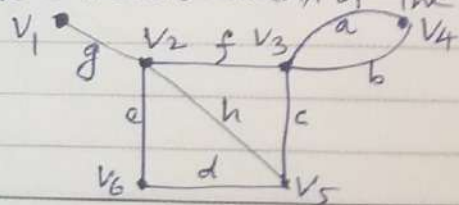 V1 g V2 f V3 a V4
b
e h c
V6 d V5